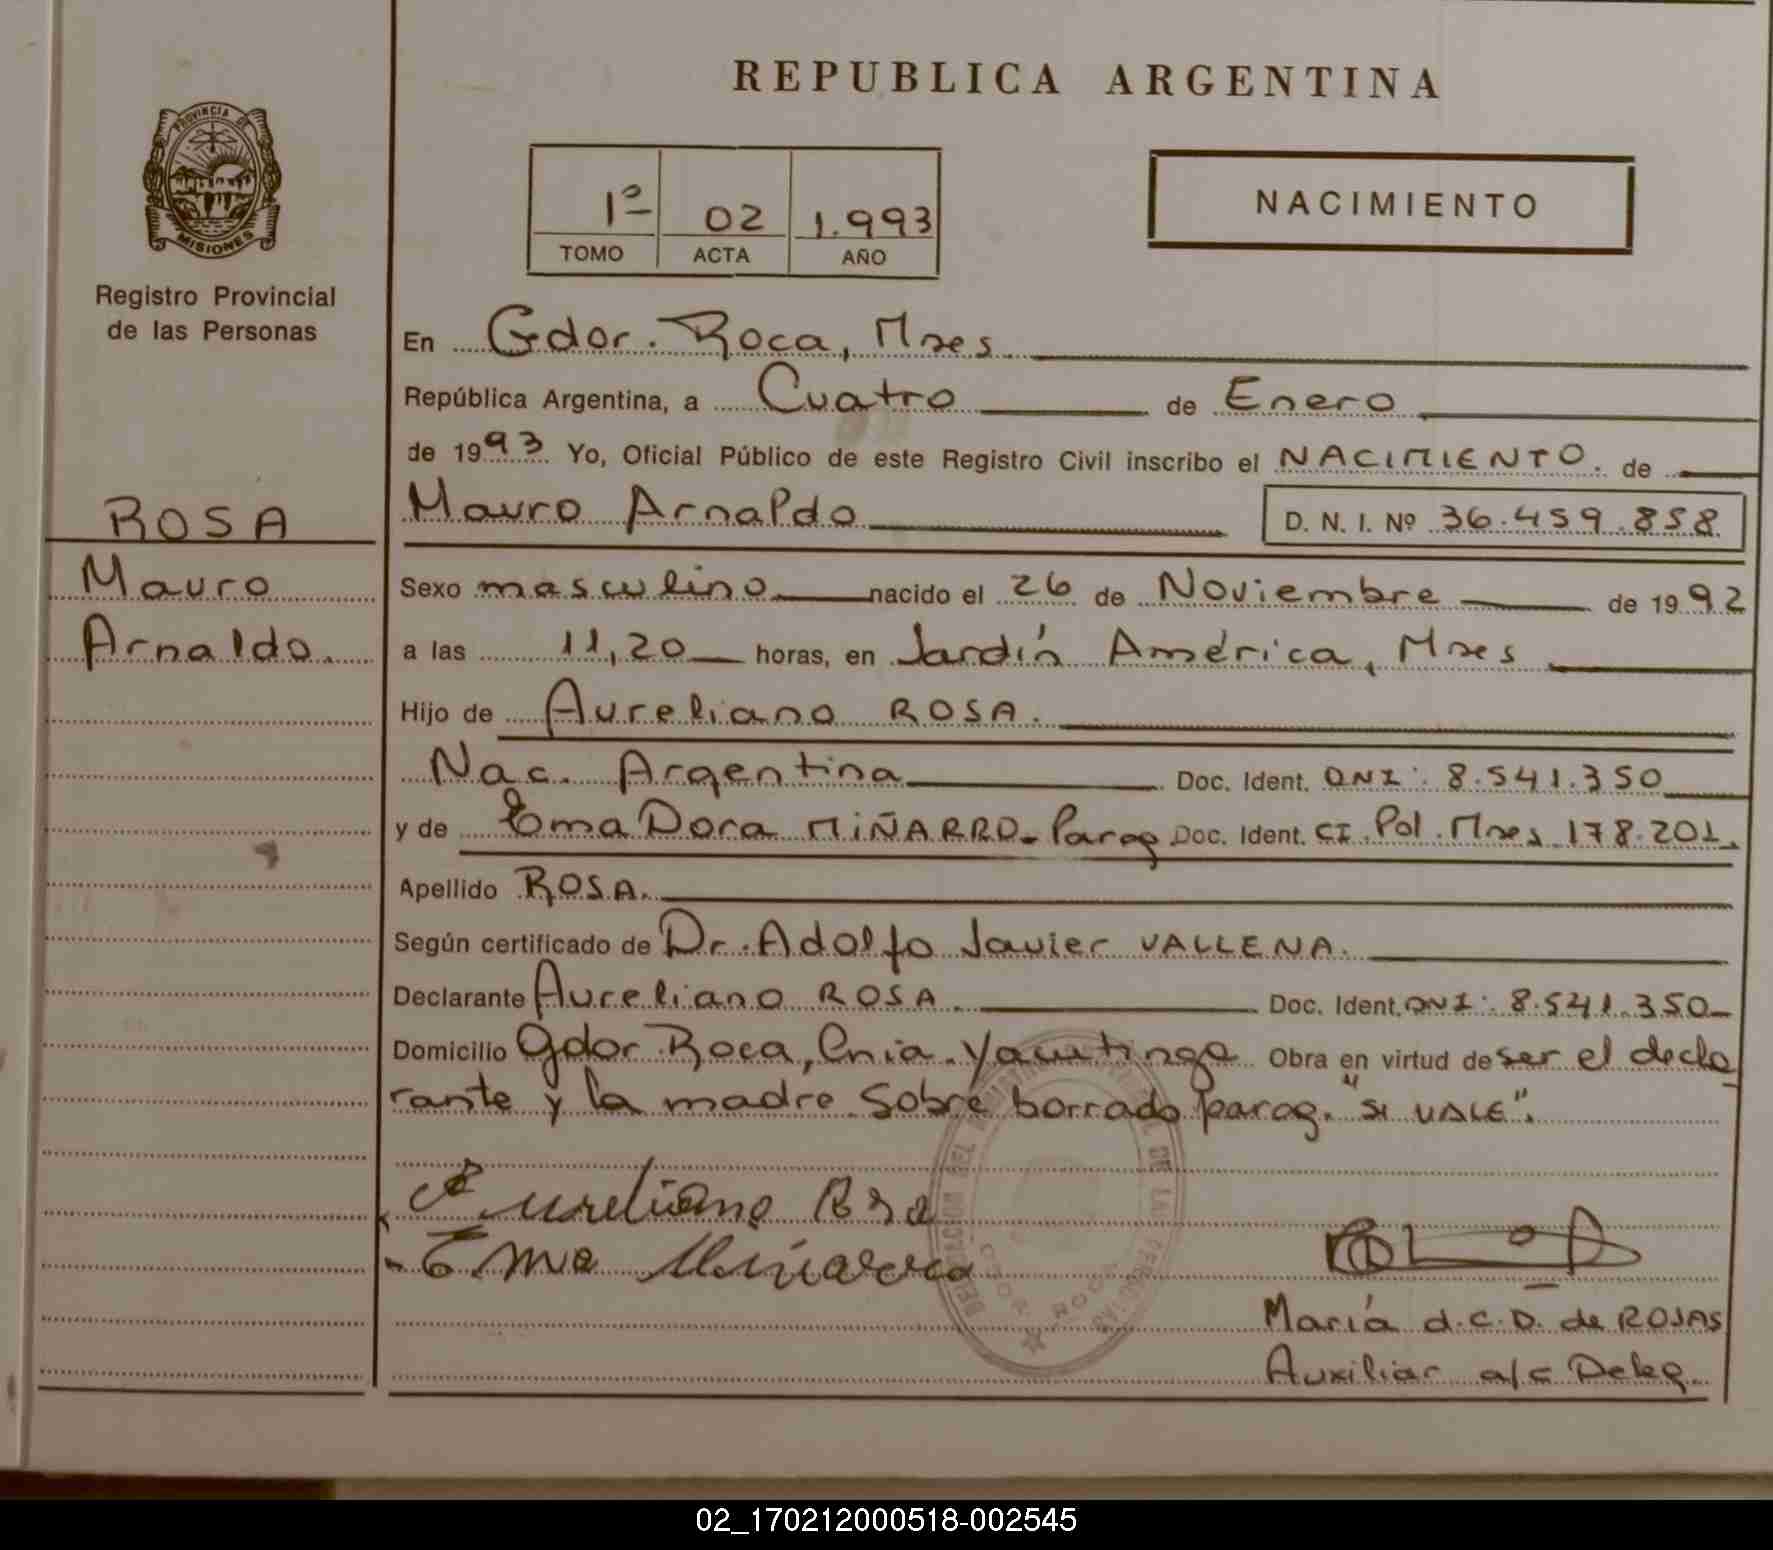 REPUBLICA ARGENTINA
PROVINCIA DE
MISIONES
Registro Provincial
de las Personas
1º 02 1.993
TOMO ACTA AÑO
NACIMIENTO
En Gdor. Roca, Mnes
República Argentina, a Cuatro de Enero
de 1993 Yo, Oficial Público de este Registro Civil inscribo el NACIMIENTO. de
ROSA
Mauro
Arnaldo.
Mauro Arnaldo D. N. I. Nº 36.459.858
Sexo masculino nacido el 26 de Noviembre de 1992
a las 11,20 horas, en Jardín América, Mnes
Hijo de Aureliano ROSA.
Nac. Argentina Doc. Ident. DNI: 8.541.350
y de Ema Dora MIÑARRO - Parag Doc. Ident. CI. Pol. Mnes 178.201.
Apellido ROSA.
Según certificado de Dr. Adolfo Javier VALLENA.
Declarante Aureliano ROSA. Doc. Ident. DNI: 8.541.350
Domicilio Gdor Roca, Cnia. Yacutinga Obra en virtud de ser el decla
rante y la madre Sobre borrado "parag. "SI VALE".
Aureliano Rosa
Ema Miñarro
GDOR. ROCA
María d.C.D. de ROJAS
Auxiliar a/c Deleg.
02_170212000518-002545